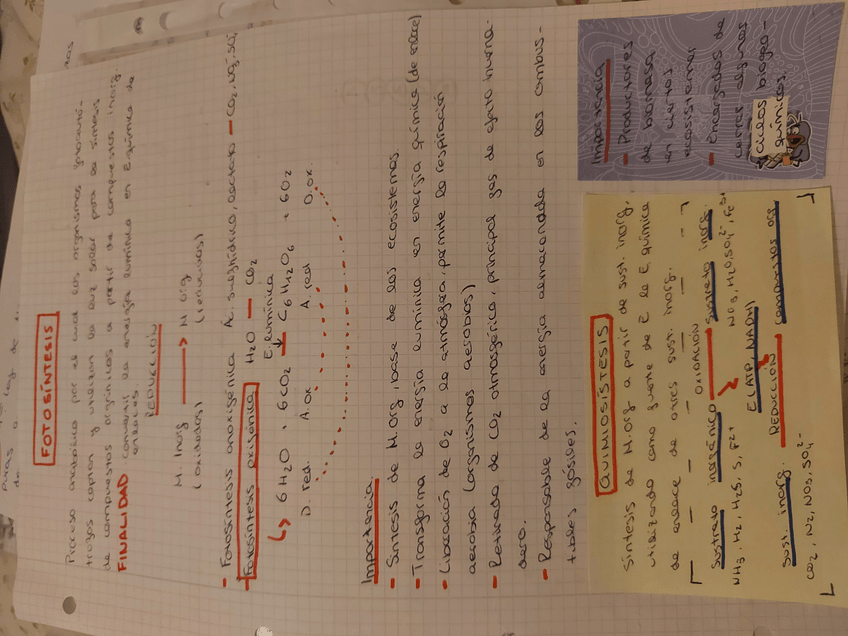 FOTOSÍNTESIS
Proceso anabólico por el cual los organismos fotosinté-
captan y utilizan la luz solar para la síntesis
de compuestos orgánicos a partir de compuestos inorg.
FINALIDAD convertir la energía lumínica en E. química de
enlaces
REDUCCIÓN
M. Inorg → M. org
(oxidados) (reducidos)
- Fotosíntesis anoxigénica Ác. sulfhídrico, lactato — CO2
- Fotosíntesis oxigénica H2O — CO2
E. lumínica
↳ 6 H2O + 6CO2 → C6H12O6 + 6O2
D. red. A. ox A. red D. ox.
Importancia
- Síntesis de M. org, base de los ecosistemas.
- Transforma la energía lumínica en energía química (de enlace)
- Liberación de O2 a la atmósfera, permite la respiración
aerobia (organismos aerobios)
- Retirada de CO2 atmosférico, principal gas de efecto inverna-
dero.
- Responsable de la energía almacenada en los combus-
tibles fósiles.
QUIMIOSÍSTESIS
Síntesis de M. org a partir de sust. inorg,
utilizando como fuente de E la E. química
de enlace de otras sust. inorg.
OXIDACIÓN
Sustrato inorgánico Sustrato inorg.
NH3, H2, H2S, S, F2+ NO3, H2O, SO4 2-, Fe 3+
E (ATP, NADH)
sust. inorg. REDUCCIÓN compuestos org
CO2, N2, NO3, SO4 2-
Importancia
- Productores
de biomasa
en ciertos
ecosistemas
- Encargados de
cerrar algunos
ciclos biogeo-
químicos.